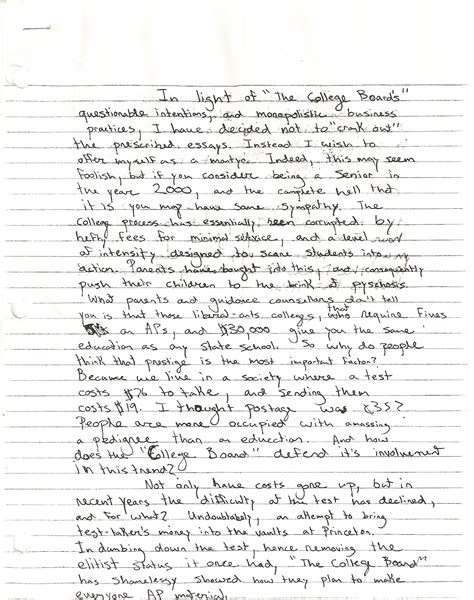 In light of "The College Board's"
questionable intentions, and monopolistic business
practices, I have decided not to "crank out"
the prescribed essays. Instead I wish to
offer myself as a martyr. Indeed, this may seem
foolish, but if you consider being a Senior in
the year 2000, and the complete hell that
it is you may have some sympathy. The
College process has essentially been corrupted by
hefty fees for minimal service, and a level
of intensity designed to scare students into
action. Parents have bought into this, and consequently
push their children to the brink of pyschosis.
What parents and guidance counsellors don't tell
you is that those liberal-arts colleges, that require Fives
on APs, and $30,000 give you the same
education as any State school. So why do people
think that prestige is the most important factor?
Because we live in a society where a test
costs $76 to take, and sending them
costs $19. I thought postage was 35?
People are more occupied with amassing
a pedigree than an education. And how
does the "College Board" defend it's involvement
in this trend?
Not only have costs gone up, but in
recent years the difficulty of the test has declined,
and for what? Undoubtably, an attempt to bring
test-taker's money into the vaults at Princeton.
In dumbing down the test, hence removing the
elitist status it once had, "The College Board"
has shamelessly showed how they plan to make
everyone AP material.